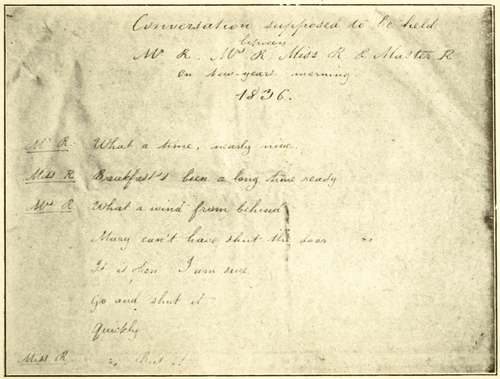 Conversation supposed to be held
between
Mr R. Mrs R. Miss R & Master R
on New-years morning
1836.
Mr R. What a time, nearly nine.
Miss R Breakfast's been a long time ready
Mrs R What a wind from behind
Mary can't have shut the door
It is open I am sure
Go and shut it
Quickly
Miss R